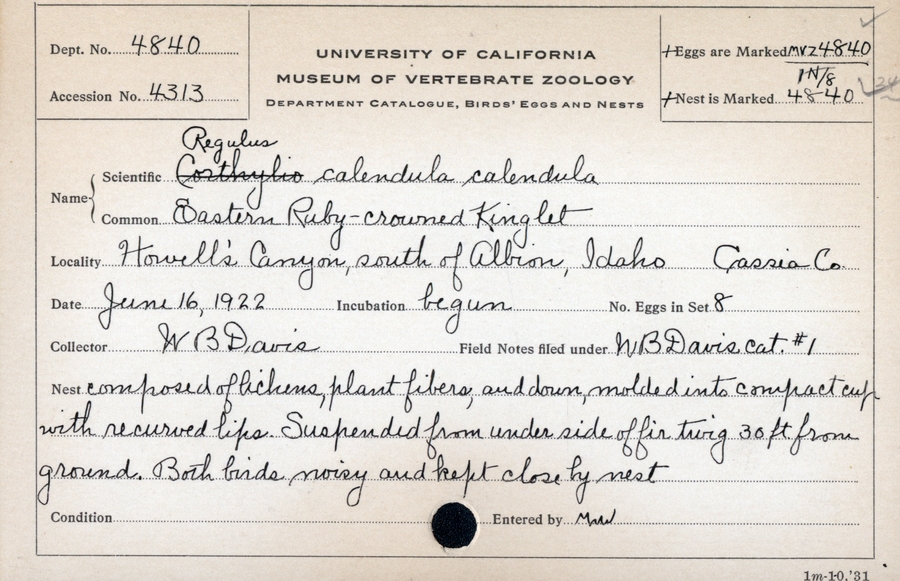 Dept. No. 4840
Accession No. 4313
UNIVERSITY OF CALIFORNIA
MUSEUM OF VERTEBRATE ZOOLOGY
DEPARTMENT CATALOGUE, BIRDS' EGGS AND NESTS
Eggs are Marked MVZ 4840
1N/8
Nest is Marked 4840
Regulus
Name Scientific Corthylio calendula calendula
Common Eastern Ruby-crowned Kinglet
Locality Howell's Canyon, south of Albion, Idaho Cassia Co.
Date June 16, 1922 Incubation begun No. Eggs in Set 8
Collector W B Davis Field Notes filed under W B Davis cat. #1
Nest composed of lichens, plant fibers, and down, molded into compact cup
with recurved lips. Suspended from under side of fir twig 30 ft from
ground. Both birds noisy and kept close by nest
Condition Entered by
1m-10,'31